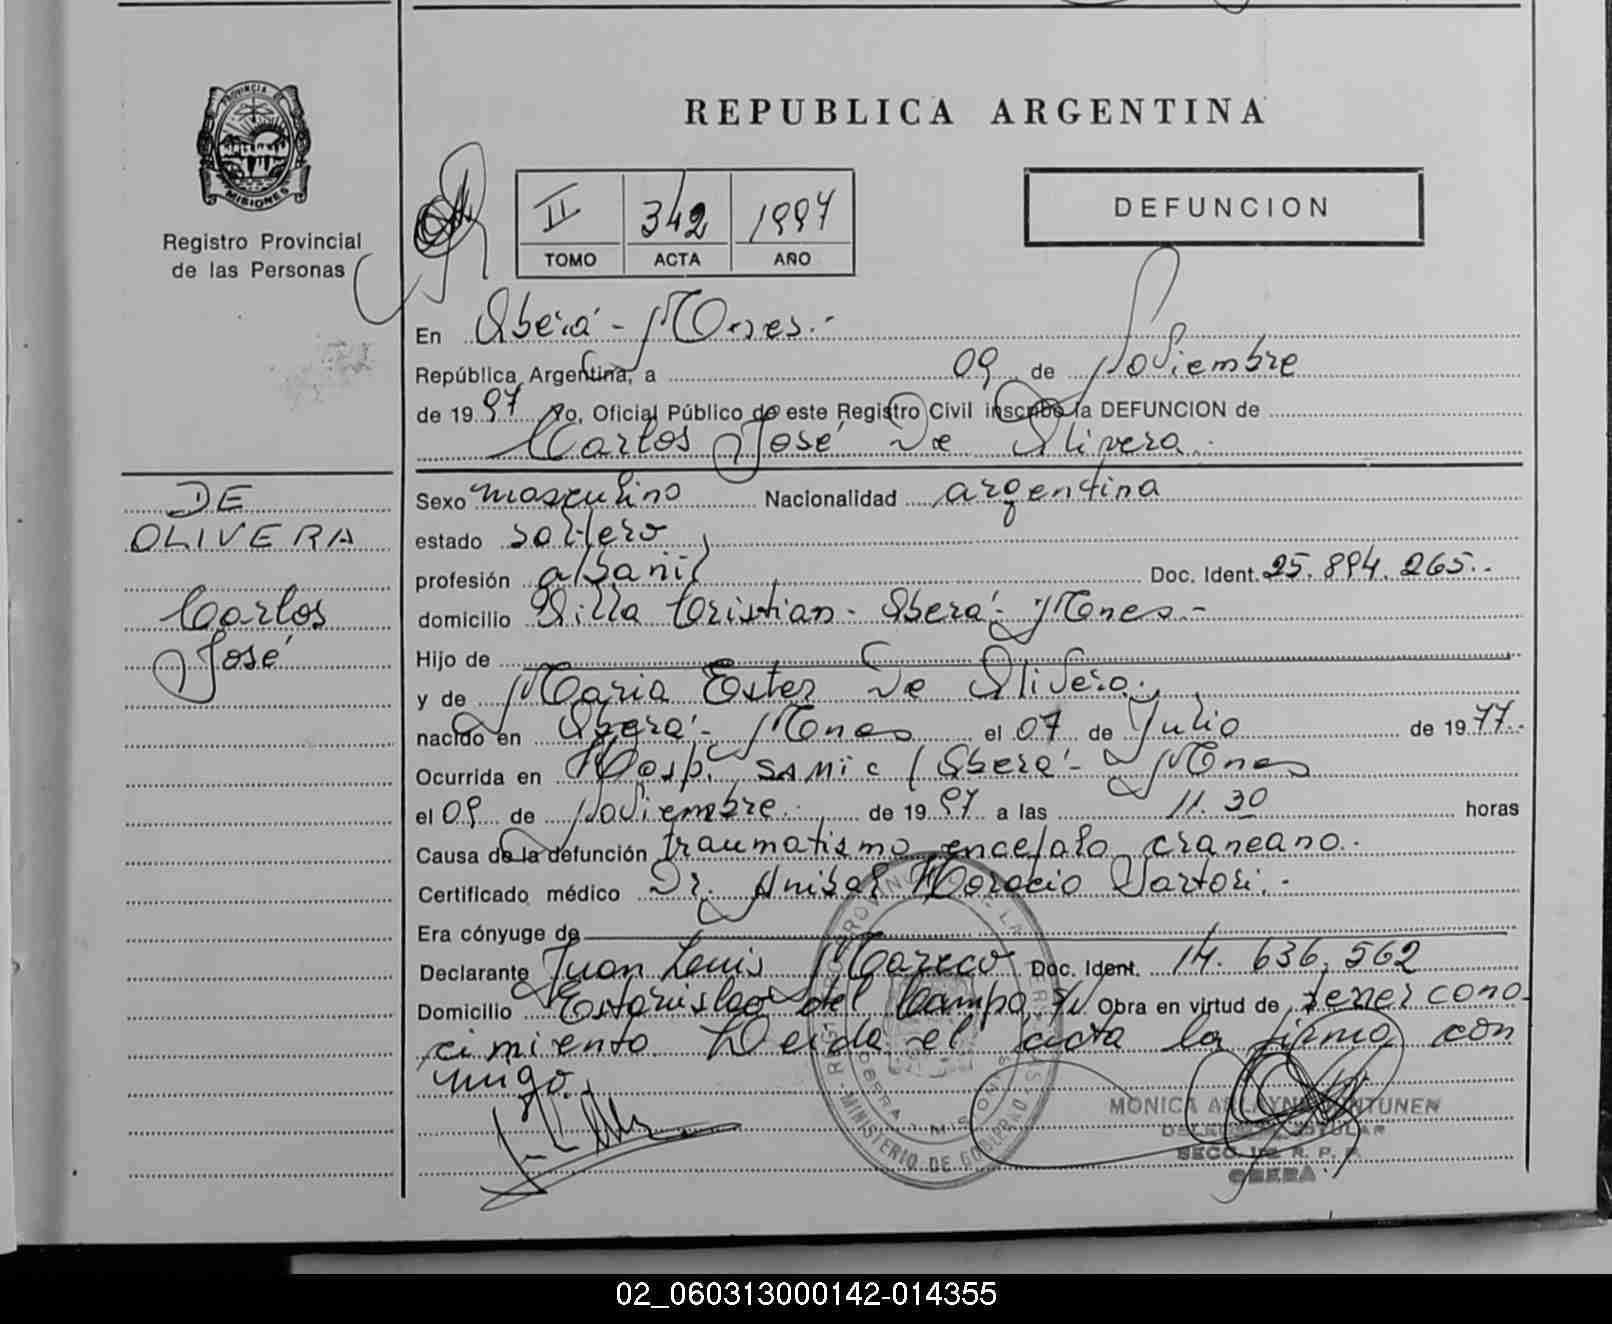 PROVINCIA
MISIONES
Registro Provincial
de las Personas
REPUBLICA ARGENTINA
II 342 1997
TOMO ACTA AÑO
DEFUNCION
En Oberá - Mnes.-
República Argentina, a 09 de Noviembre
de 1997 Yo, Oficial Público de este Registro Civil inscribo la DEFUNCION de
Carlos José De Olivera.
DE
OLIVERA
Carlos
José
Sexo masculino Nacionalidad argentina
estado soltero
profesión albañil Doc. Ident. 25.894.265.-
domicilio Villa Cristian - Oberá - Mnes.-
Hijo de
y de Maria Ester De Olivera.
nacido en Oberá - Mnes el 07 de Julio de 1977.-
Ocurrida en Hosp. SAMIC / Oberá - Mnes
el 09 de Noviembre de 1997 a las 11.30 horas
Causa de la defunción traumatismo encefalo craneano.-
Certificado médico Dr. Anibal Horacio Sartori.-
Era cónyuge de
Declarante Juan Luis Mareco Doc. Ident. 14.636.562
Domicilio Estanislao del Campo S/N Obra en virtud de tener cono
cimiento. Leida el acta la firma con
migo.
MINISTERIO DE GOBIERNO
OBERA MISIONES
MONICA
SECC. R. P. P.
OBERA
02_060313000142-014355